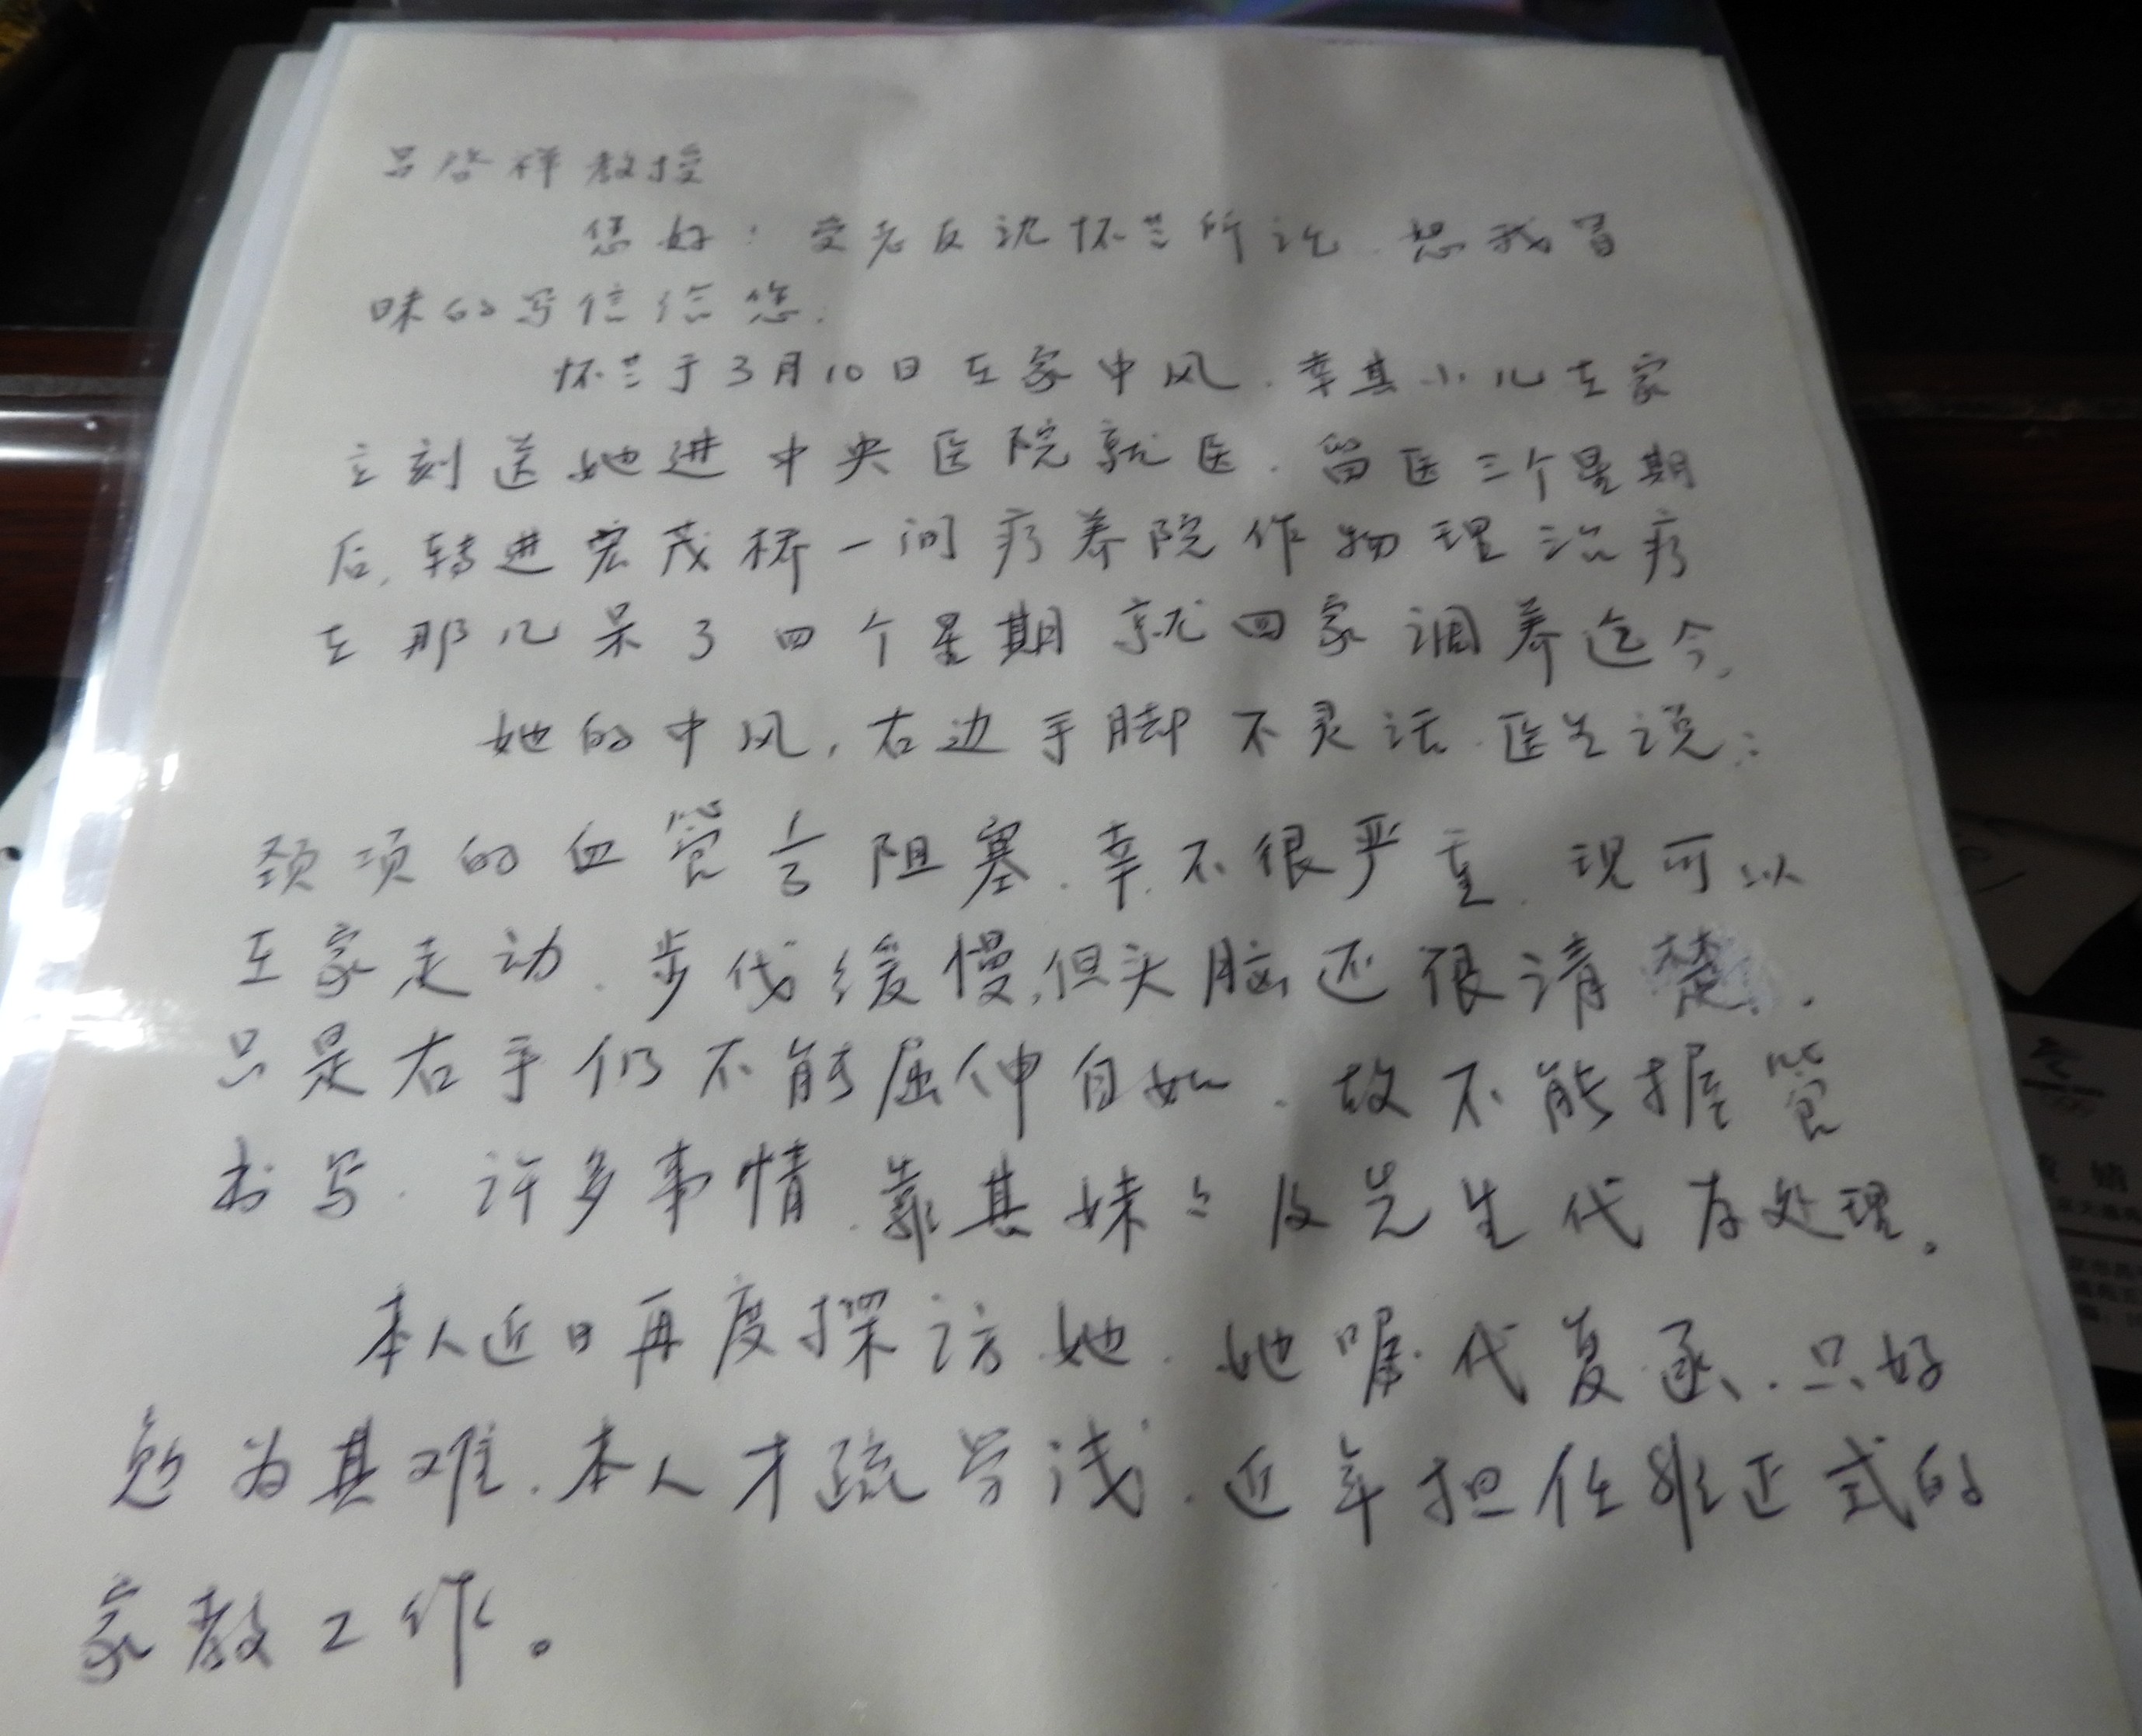 吕启祥教授
您好：受老友沈怀兰所托，恕我冒
昧的写信给您。
怀兰于3月10日在家中风，幸其小儿在家
立刻送她进中央医院就医，留医三个星期
后，转进宏茂桥一间疗养院作物理治疗
在那儿呆了四个星期就回家调养迄今，
她的中风，右边手脚不灵活，医生说：
颈项的血管1/3阻塞，幸不很严重，现可以
在家走动，步伐缓慢，但头脑还很清楚，
只是右手仍不能屈伸自如，故不能握管
书写，许多事情，靠其妹妹及先生代为处理。
本人近日再度探访她，她嘱代复函，只好
勉为其难，本人才疏学浅，近年担任非正式的
家教工作。